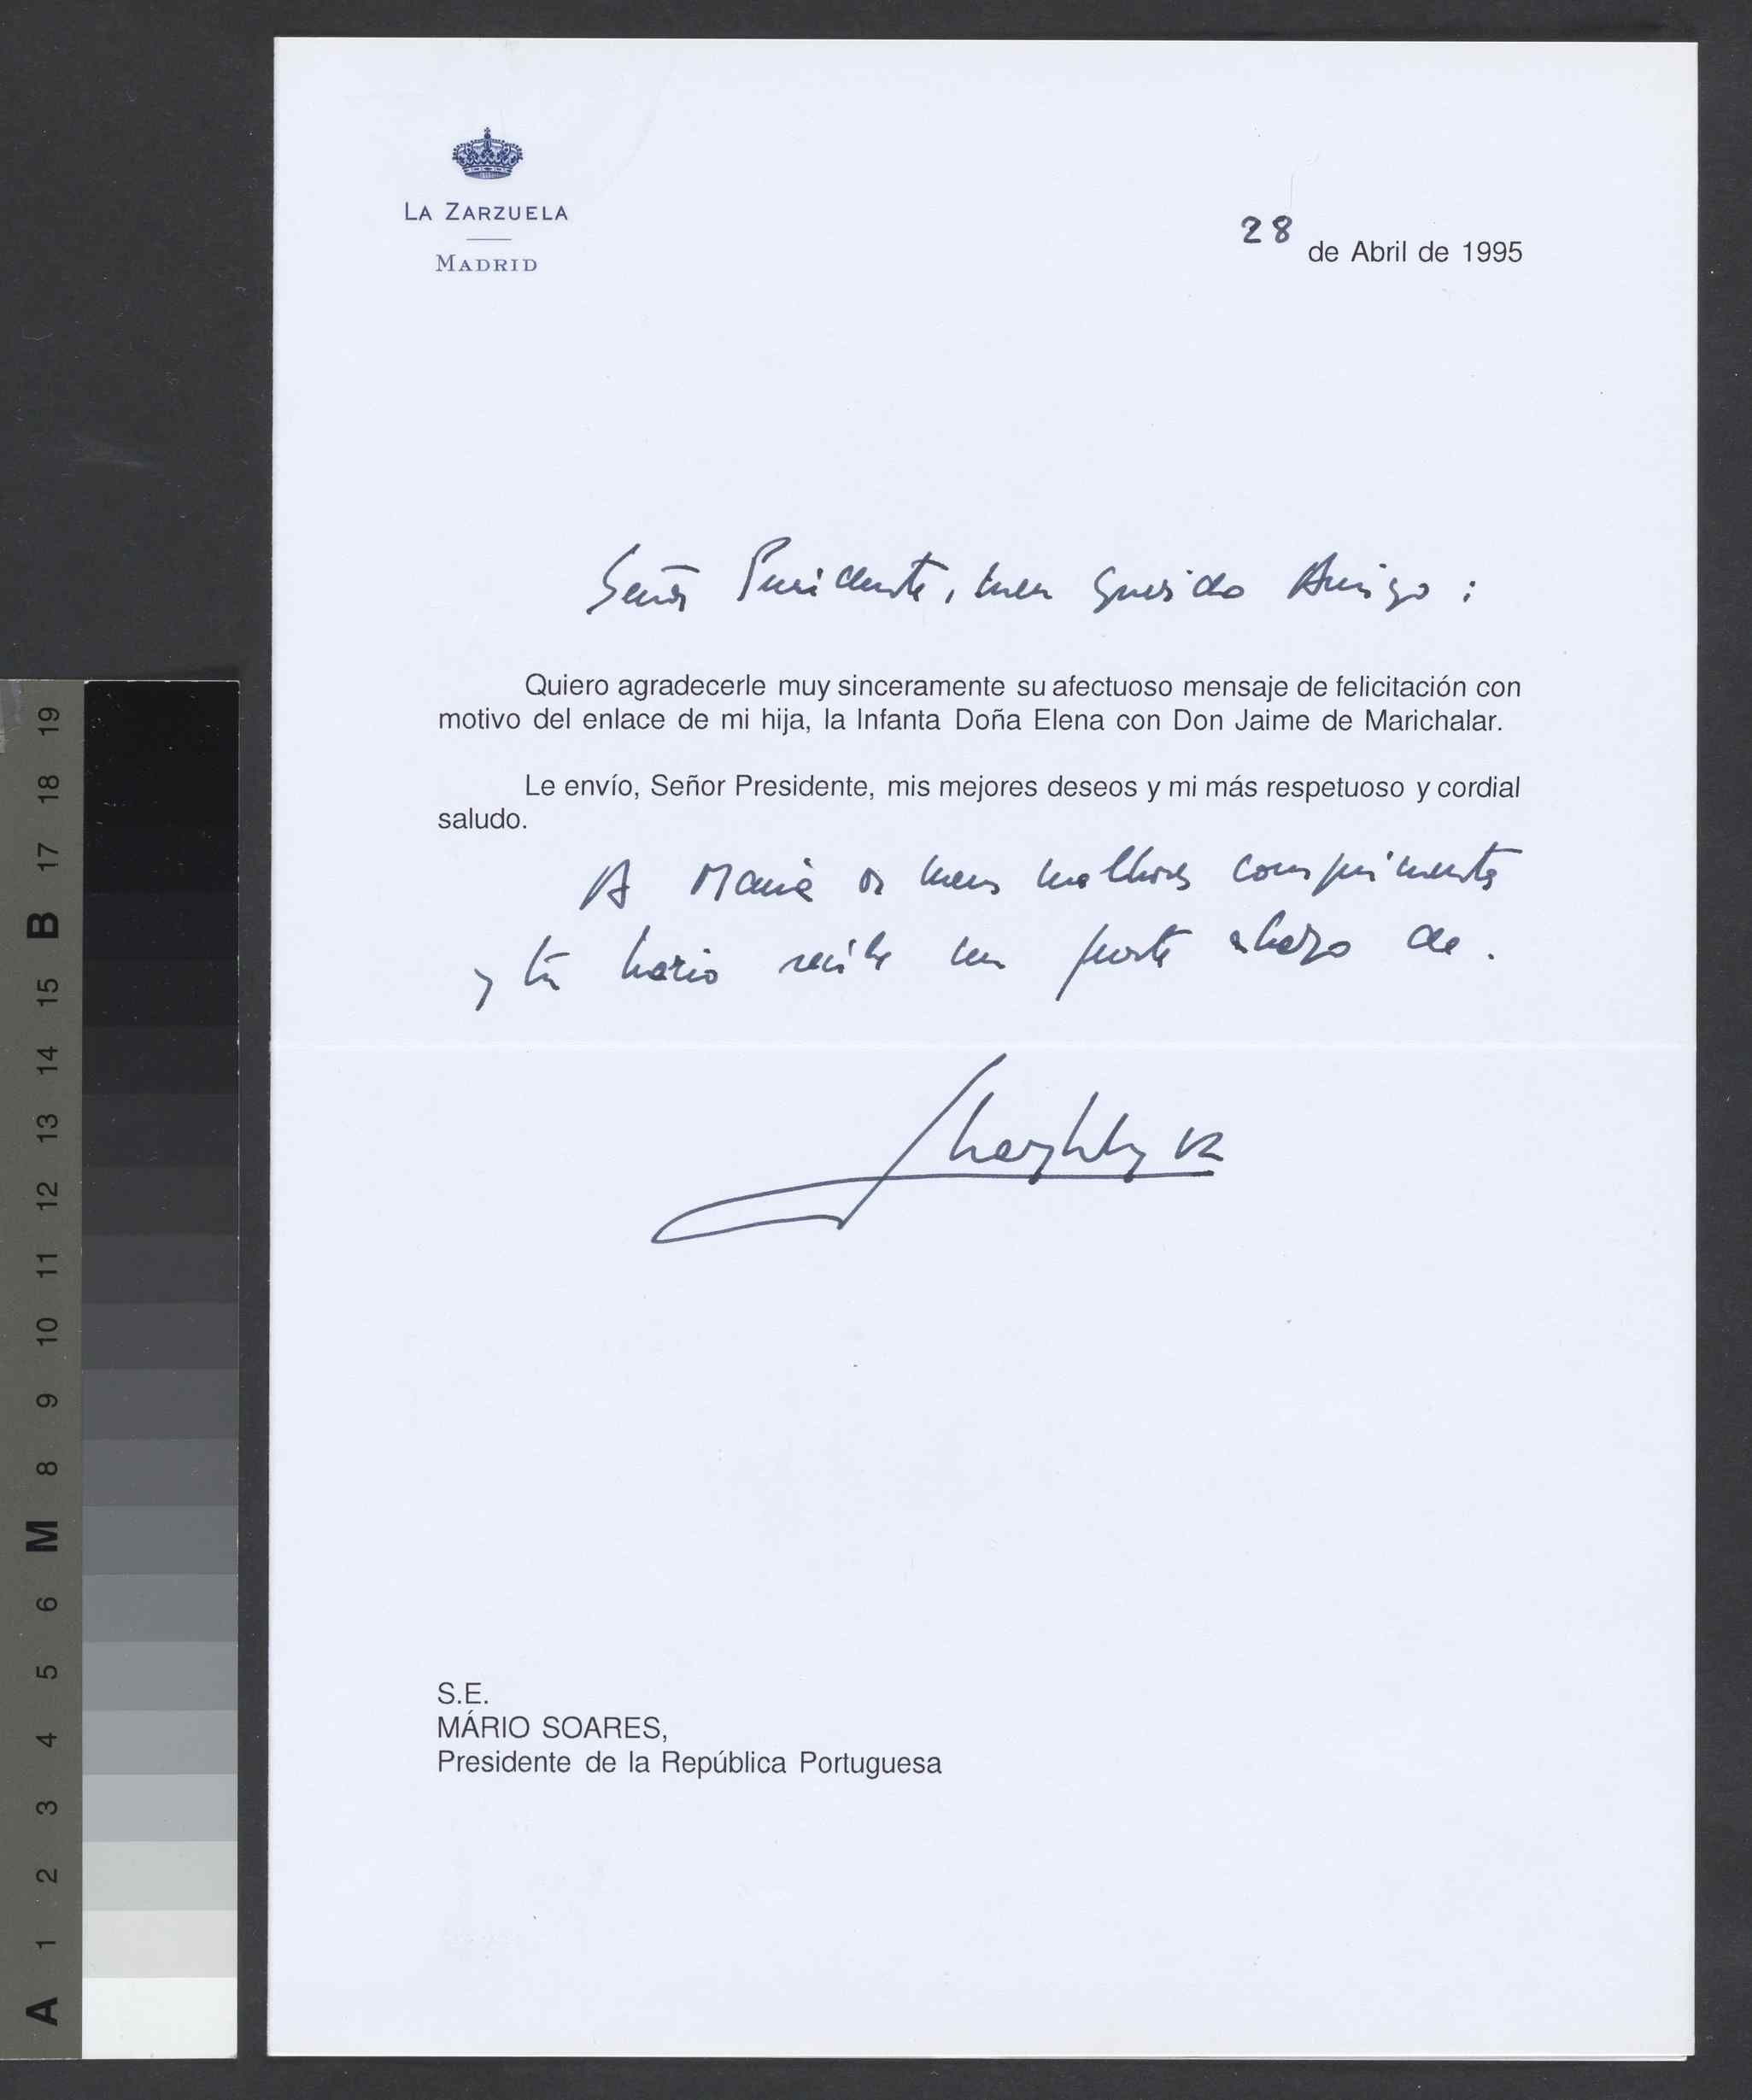 LA ZARZUELA
MADRID
28 de Abril de 1995
Señor Presidente, meu querido Amigo:
Quiero agradecerle muy sinceramente su afectuoso mensaje de felicitación con
motivo del enlace de mi hija, la Infanta Doña Elena con Don Jaime de Marichalar.
Le envío, Señor Presidente, mis mejores deseos y mi más respetuoso y cordial
saludo.
A Maria os meus melhores comprimentos
y tú Mario recibe un fuerte abrazo de.
S.E.
MÁRIO SOARES,
Presidente de la República Portuguesa
19
18
17
B
15
14
13
12
11
10
9
8
M
6
5
4
3
2
1
A